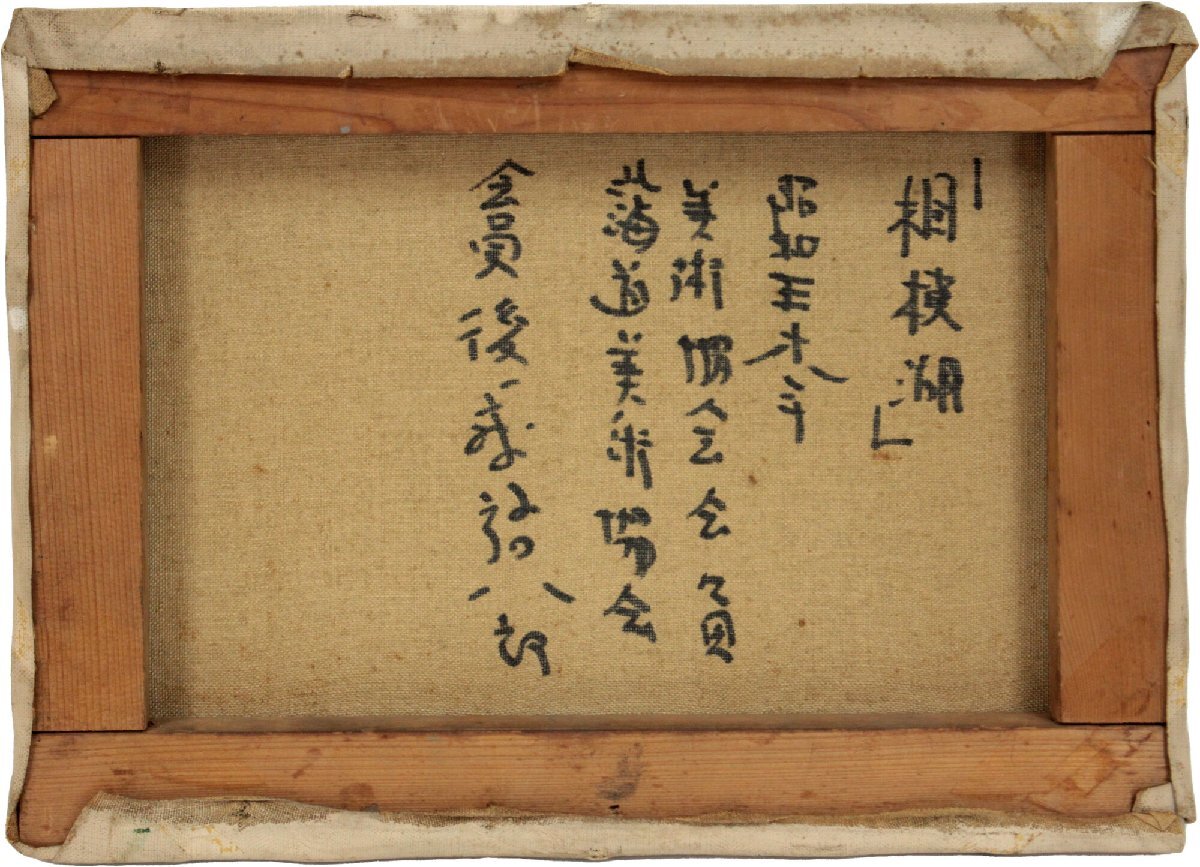 「相模湖」
昭和五十八年
美術協会会員
北海道美術協会
会員後藤弘八郎